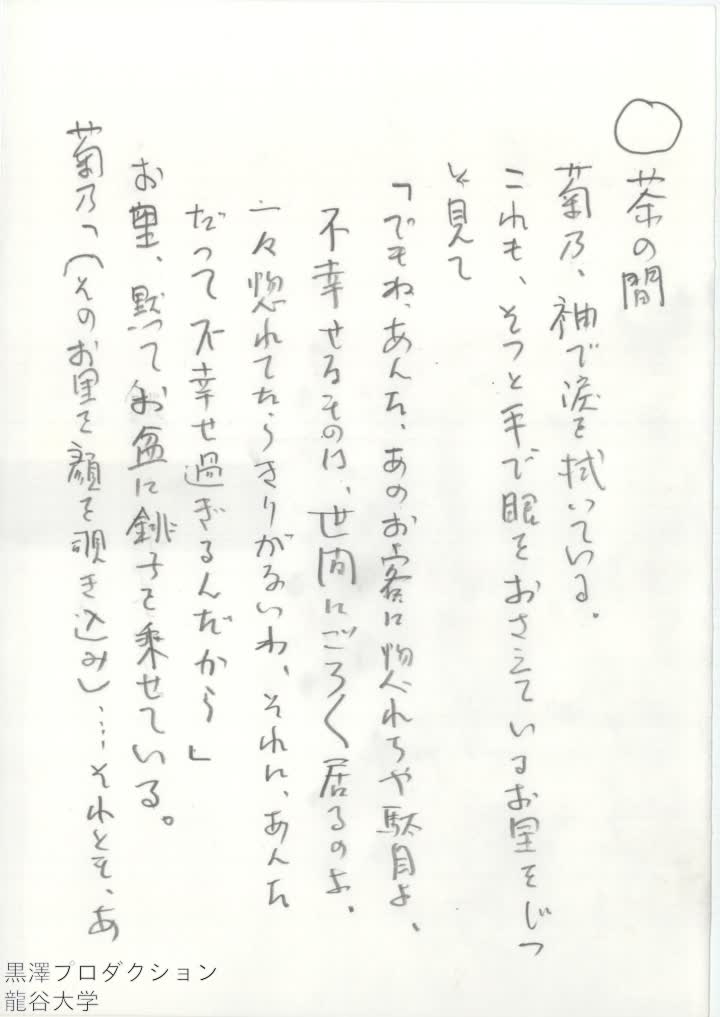 ○ 茶の間
菊乃、袖で涙を拭いている。
これも、そっと手で眼をおさえているお里をじっ
と見て
「でもね、あんた、あのお客に惚れちや駄目よ、
不幸せなものは、世間にごろ〱居るのよ、
一々惚れてたらきりがないわ、それに、あんた
だって不幸せ過ぎるんだから」
お里、黙ってお盆に銚子を乗せている。
菊乃「(そのお里を顔を覗き込み)……それとも、あ
黒澤プロダクション
龍谷大学